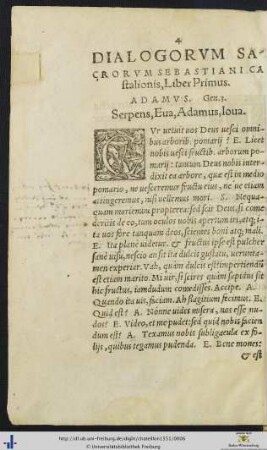 4
DIALOGORVM SA-
CRORVM SEBASTIANI CA
stalionis, Liber Primus.
ADAMVS. Gen.3.
Serpens, Eua, Adamus, Ioua.
CVr uetuit uos Deus uesci omni-
bus arborib. pomarij? E. Licet
nobis uesci fructib. arborum po-
marij: tantum Deus nobis inter-
dixit ea arbore, quæ est in medio
pomario, ne uesceremur fructu eius, ne ue etiam
attingeremus, nisi uellemus mori. S. Nequa-
quam moriemini propterea: sed scit Deus, si come-
deritis de eo, tum oculos nobis apertum iri, atq; i-
ta uos fore tanquam deos, scientes boni atq; mali.
E. Ita planè uidetur. & fructus ipse est pulcher
sanè uisu, nescio an sit ita dulcis gustatu, ueruntа-
men experiar. Vah, quàm dulcis est! impertiendū
est etiam marito. Mi uir, si scires quàm sapidus sit
hic fructus, iamdudum comedisses. Accipe. A.
Quando ita uis, faciam. Ah flagitium fecimus. E.
Quid est? A. Nonne uides misera, nos esse nu-
dos? E. Video, et me pudet: sed quid nobis facien-
dum est? A. Texamus nobis subligacula ex fo-
lijs, quibus tegamus pudenda. E. Bene mones:
& est
http://dl.ub.uni-freiburg.de/diglit/chatellion1551/0006
© Universitätsbibliothek Freiburg